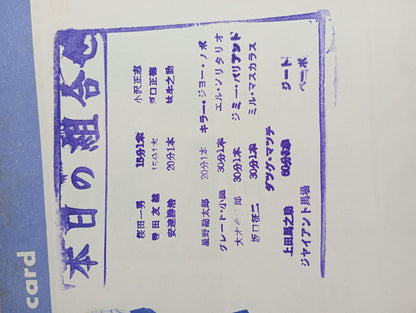 card
本日の組合せ
桜田一男 15分1本 小沢正志
15分1本
安達勝治 20分1本 林牛之助
星野勘太郎 20分1本 キラー・ジョー・ノボ
グレート・小鹿 30分1本 エル・ソリタリオ
30分1本 ジミー・バリアント
坂口征二 30分1本 ミル・マスカラス
タッグ・マッチ
上田馬之助 60分3本 ジート
ジャイアント馬場 ベーポ